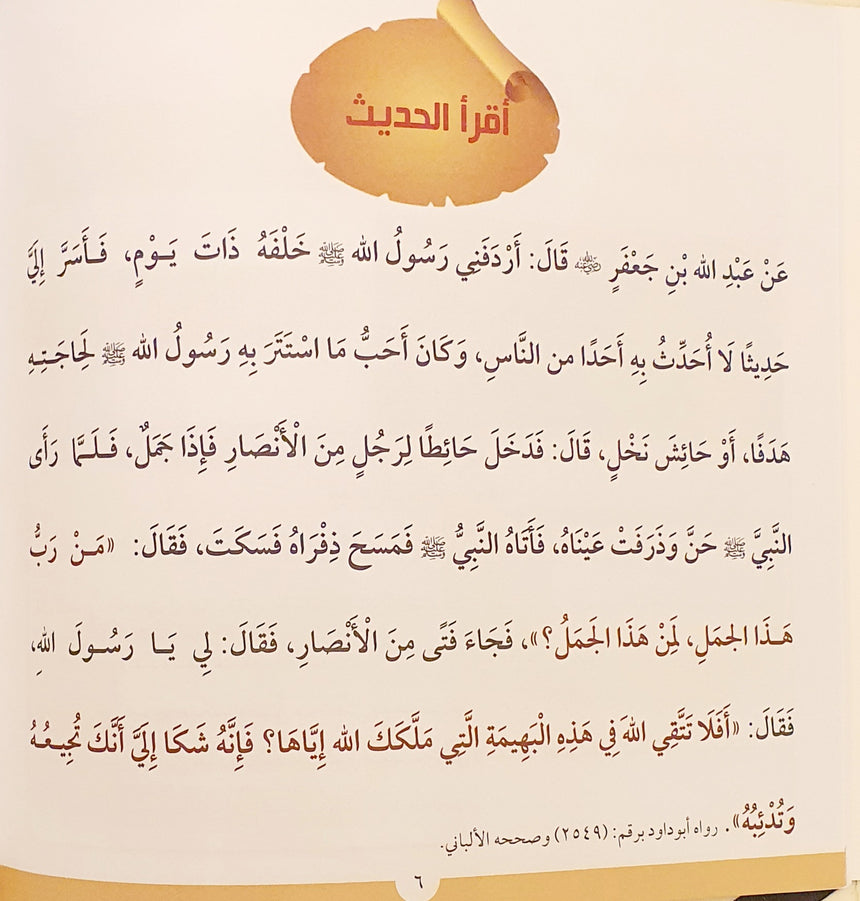 أقرأ الحديث
عَنْ عَبْدِ الله بْنِ جَعْفَرٍ رضي الله عنه قَالَ: أَرْدَفَنِي رَسُولُ الله ﷺ خَلْفَهُ ذَاتَ يَـوْمٍ، فَـأَسَرَّ إِلَيَّ
حَدِيثًا لَا أُحَدِّثُ بِهِ أَحَدًا من النَّاسِ، وَكَانَ أَحَبُّ مَا اسْتَتَرَ بِهِ رَسُولُ الله ﷺ لِحَاجَـتِـهِ
هَدَفًا، أَوْ حَائِشَ نَخْلٍ، قَالَ: فَدَخَلَ حَائِطًا لِرَجُلٍ مِنَ الْأَنْصَارِ فَإِذَا جَمَلٌ، فَـلَـمَّا رَأَى
النَّبِيَّ ﷺ حَنَّ وَذَرَفَتْ عَيْنَاهُ، فَأَتَاهُ النَّبِيُّ ﷺ فَمَسَحَ ذِفْرَاهُ فَسَكَتَ، فَقَالَ: «مَـنْ رَبُّ
هَـذَا الجمَلِ، لِمَنْ هَذَا الْجَمَلُ؟»، فَجَاءَ فَتًى مِنَ الْأَنْصَارِ، فَقَالَ: لِي يَـا رَسُـولَ اللهِ،
فَقَالَ: «أَفَلَا تَتَّقِي اللهَ فِي هَذِهِ الْبَهِيمَةِ الَّتِي مَلَّكَكَ الله إِيَّاهَا؟ فَإِنَّهُ شَكَا إِلَيَّ أَنَّكَ تُجِيـعُـهُ
وَتُدْئِبُهُ». رواه أبو داود برقم: (٢٥٤٩) وصححه الألباني.
٦